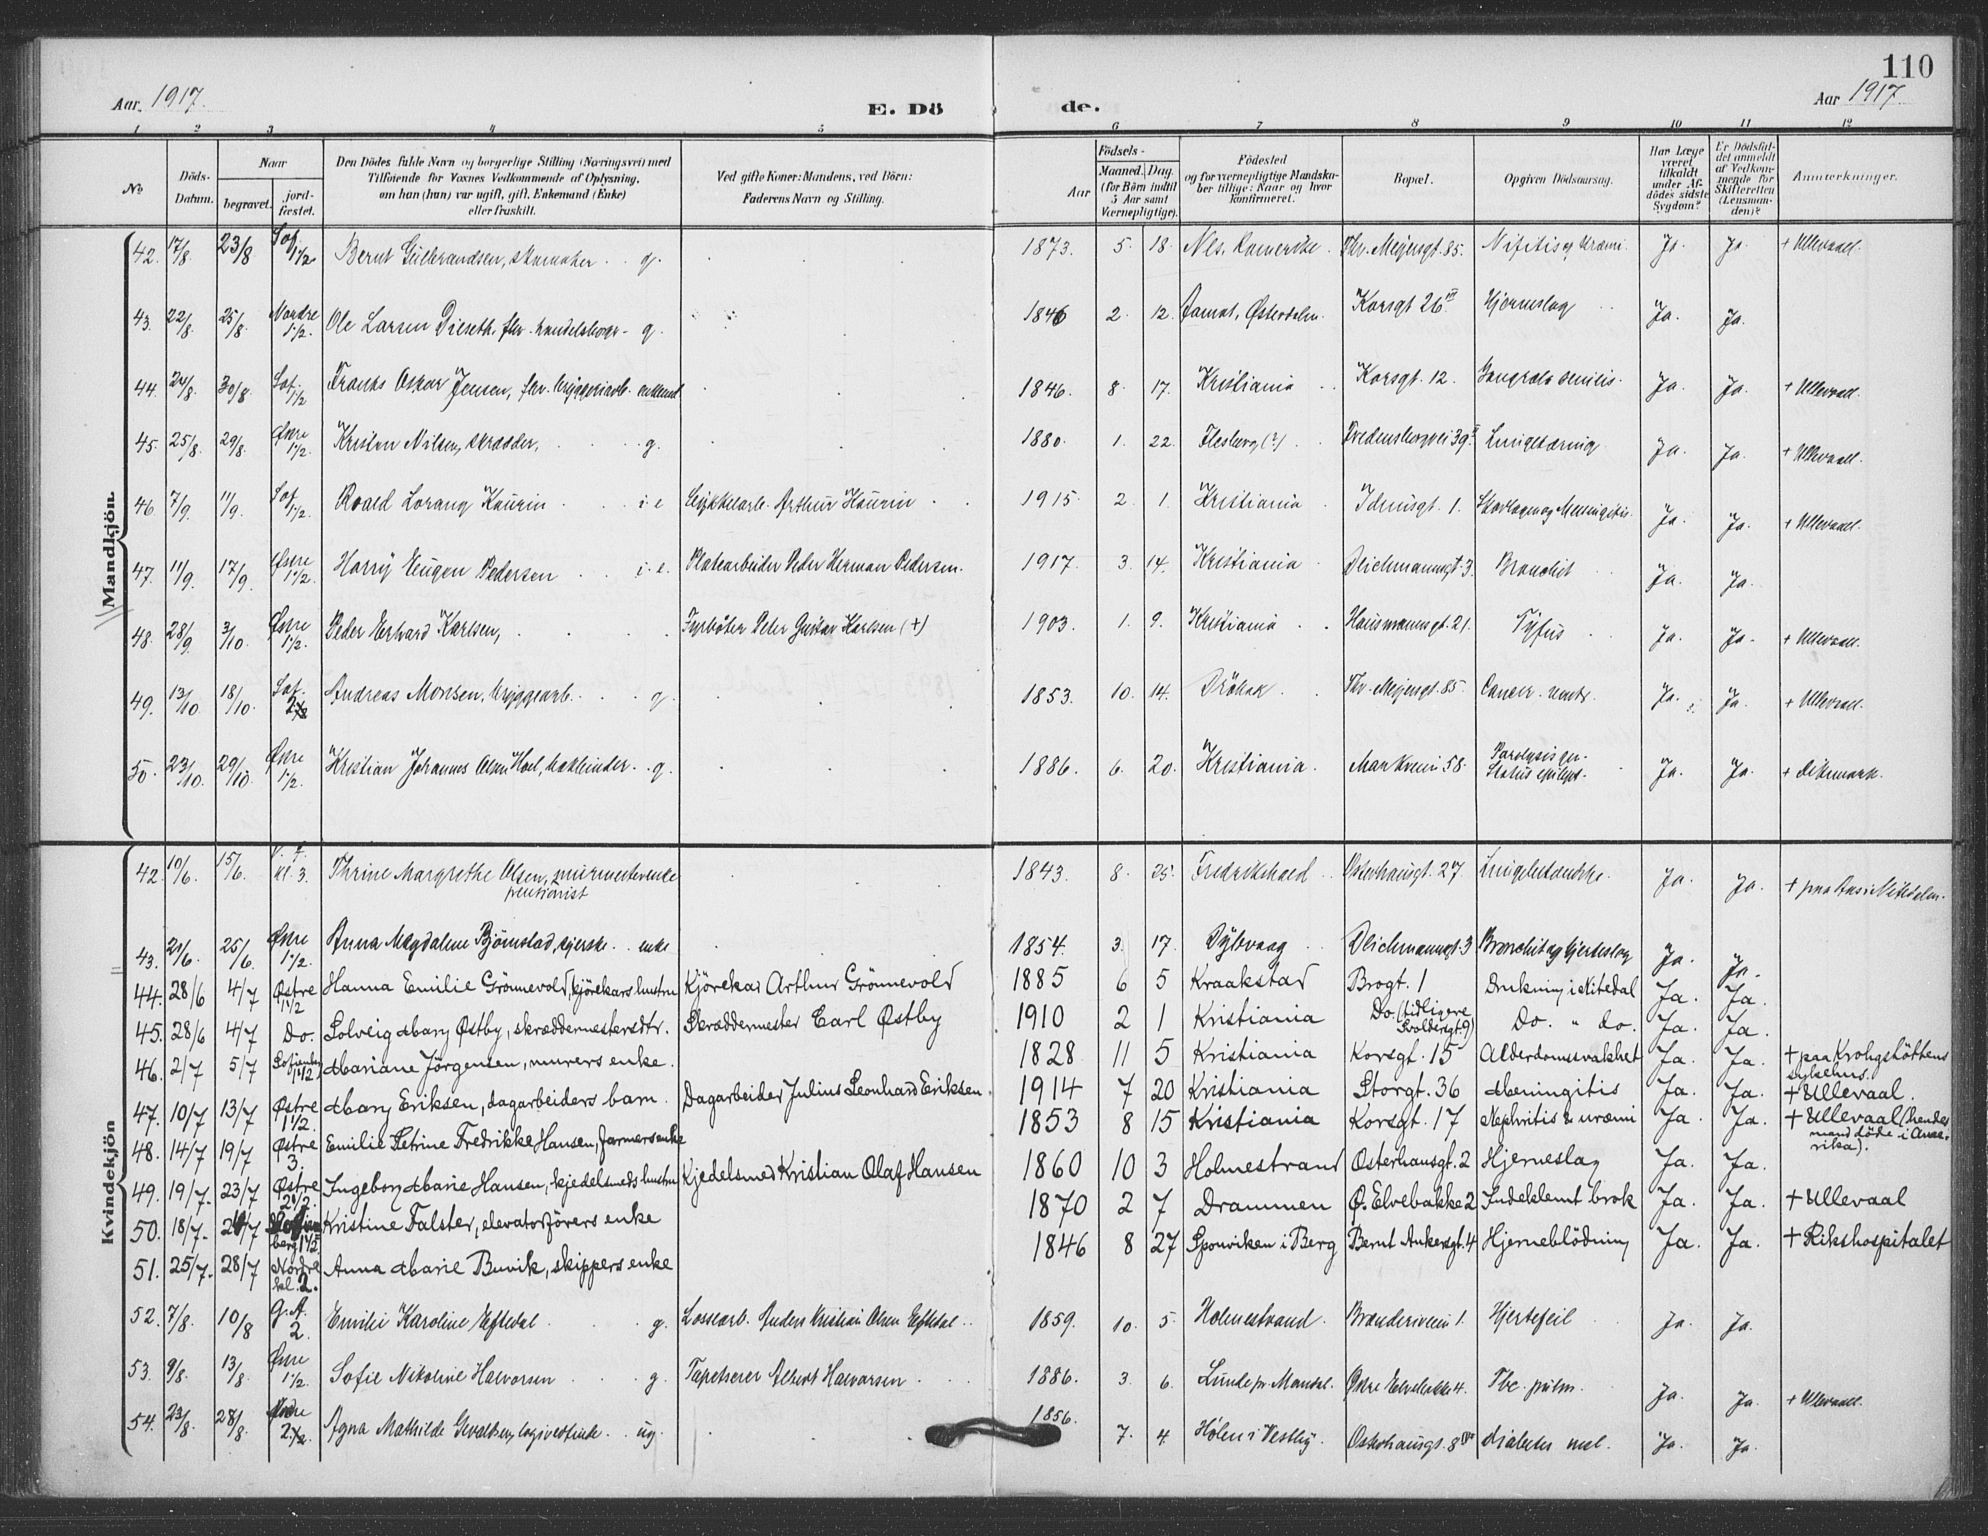 110
Aar 1917.
E. Dö
de.
Aar 1917.
1 2 3 4 5 6 7 8 9 10 11 12
No
Döds-
Datum.
Naar
begravet.
jord-
fæstet.
Den Dödes fulde Navn og borgerlige Stilling (Næringsvei) med
Tilføiende for Voxnes Vedkommende af Oplysning,
om han (hun) var ugift, gift, Enkemand (Enke)
eller fraskilt.
Ved gifte Koner: Mandens, ved Börn:
Faderens Navn og Stilling.
Födsels-
Aar
Maaned. Dag.
(for Börn indtil
5 Aar samt
Værnepligtige).
Födested
og for værnepligtige Mandska-
ber tillige: Naar og hvor
konfirmeret.
Bopæl.
Opgiven Dödsaarsag.
Har Læge
været
tilkaldt
under Af-
dödes sidste
Sygdom?
Er Dödsfal-
det anmeldt
af Vedkom-
mende for
Skifteretten
(Lensman-
den)?
Anmærkninger.
Mandkjön.
42. 17/8 23/8 Sof. 1 1/2 Bernt Gulbrandsen, skomaker g. 1873. 5. 18. Nes, Romerike Thv. Meyersgt. 85. Nifitis og Uræmi Ja. Ja. + Ullevaal.
43. 22/8 25/8 Nordre 1 1/2. Ole Larsen Dieseth, fhv. handelsborger g. 1846 2. 12. Aamot, Østerdalen Korsgt 26 III Hjerneslag Ja. Ja.
44. 24/8 30/8 Sof. 1 1/2 Frants Oskar Jensen, fhv. bryggeriarb. enkemd. 1846. 8. 17. Kristiania Korsgt. 12. Gangræna senilis. Ja. Ja. + Ullevaal.
45. 25/8 29/8. Østre 1 1/2. Kristen Nilsen, skrædder, g. 1880. 1. 22. Flesberg (?) Fredensborgvei 39 II Lungetæring Ja. Ja. + Ullevaal.
46. 7/9 11/9. Sof. 1 1/2. Roald Lorang Kaurin i e Stykkelarb. Arthur Kaurin 1915. 2. 1. Kristiania Idunsgt. 1. Skarlagen og Meningitis. Ja. Ja. + Ullevaal.
47. 11/9. 17/9. Østre 1 1/2. Harry Eugen Pedersen i. e. Platearbeider Peder Herman Pedersen. 1917. 3. 14. Kristiania Deichmannsgt. 3. Bronchit Ja. Ja.
48. 28/9 3/10. Østre 1 1/2. Peder Erhard Karlsen, Fyrbøter Peter Gustav Karlsen (+) 1903. 1. 9. Kristiania Hausmannsgt. 21. Tyfus Ja. Ja. + Ullevaal.
49. 13/10 18/10. Sof. 2 Andreas Monsen, bryggearb. g. 1853. 10. 14. Drøbak Thv. Meyersgt. 85. Cancer ventr. Ja. Ja. + Ullevaal.
50. 23/10. 29/10. Østre 1/2. Kristian Johannes Olsen Hoel, bokbinder g. 1886. 6. 20. Kristiania Markveien 58. Paralysis gen. Status epilept. Ja. Ja. + Dikemark.
Kvindekjön
42. 10/6. 15/6. V. F. Kl. 3. Thrine Margrethe Olsen, murmesterenke 1843. 8. 25. Fredrikshald Osterhausgt. 27 Lungebetændelse. Ja. Ja. + paa Aas i Nitedalen.
pensionist
43. 21/6. 25/6. Østre 1 1/2. Anna Magdalene Bjørnstad, syerske enke 1854. 3. 17. Dybvaag Deichmannsgt. 3 Bronchit og Hjerteslag Ja. Ja.
44. 28/6 4/7 Østre 1 1/2 Hanna Emilie Grönnevold, kjörekars hustru Kjörekar Arthur Grönnevold 1885 6 5 Kraakstad Brogt. 1 Drukning i Nitedal Ja. Ja.
45. 28/6 4/7 Do. Solveig Mary Østby, skræddermestersdtr. Skræddermester Carl Østby 1910 2 1 Kristiania Do. (tidligere Svoldersgt. 9) Do. " do. Ja. Ja.
46. 2/7 5/7 Sofienberg 1 1/2 Mariane Jörgensen, murers enke. 1828 11 5 Kristiania Korsgt. 15 Alderdomssvakhet Ja. Ja. + paa Krohgstöttens sykehus.
47. 10/7 13/7 Østre 1 1/2. Mary Eriksen, dagarbeiders barn. Dagarbeider Julius Leonhard Eriksen 1914 7 20 Kristiania Storgt. 36 Meningitis Ja. Ja. + Ullevaal.
48. 14/7 19/7 Østre 3. Emilie Petrine Fredrikke Hansen, farmers enke 1853 8 15 Kristiania Korsgt. 17 Nephritis & uræmi Ja. Ja. + Ullevaal (hendes mand döde i Amerika).
49. 19/7. 23/7 Østre 2 1/2. Ingeborg Marie Hansen, kjedelsmeds hustru Kjedelsmed Kristian Olaf Hansen 1860 10 3 Holmestrand Osterhausgt. 2 Hjerneslag Ja. Ja.
50. 18/7. Sofienberg 1 1/5 Kristine Falster, elevatorförers enke 1870 2 7 Drammen Ø. Elvebakke 2 Indeklemt brok Ja. Ja. + Ullevaal
51. 25/7. 28/7 Nordre kl. 2. Anna Marie Buvik, skippers enke 1846 8 27 Sponviken i Berg Bernt Ankersgt. 4 Hjerneblödning Ja. Ja. + Rikshospitalet
52. 7/8. 10/8 G. A. 2. Emilie Karoline Eftedal g. Lossearb. Anders Kristian Olsen Eftedal 1859. 10. 5. Holmestrand. Brænderiveien 1. Hjertefeil Ja. Ja.
53. 9/8. 13/8. Østre 1 1/2. Sofie Nikoline Halvorsen g. Tapetserer Albert Halvorsen 1886. 3. 6. Lunde pr. Mandal. Østre Elvebakke 4. Tbc. pulm. Ja. Ja. + Ullevaal.
54. 23/8. 28/8. 2 Agna Mathilde logivertinde ug. 1856. 7. 4. Hölen i Vestby. Osterhausgt. 8 diabetes mel. Ja. Ja.